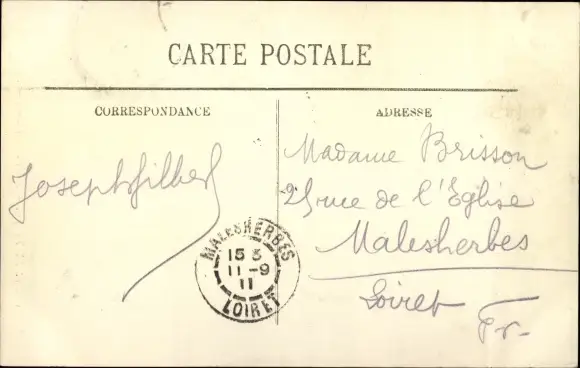 CARTE POSTALE
CORRESPONDANCE
Joseph Gilbert
ADRESSE
Madame Brisson
25 rue de l'Eglise
Malesherbes
Loiret
Fr.
MALESHERBES
15 3
11-9
11
LOIRET